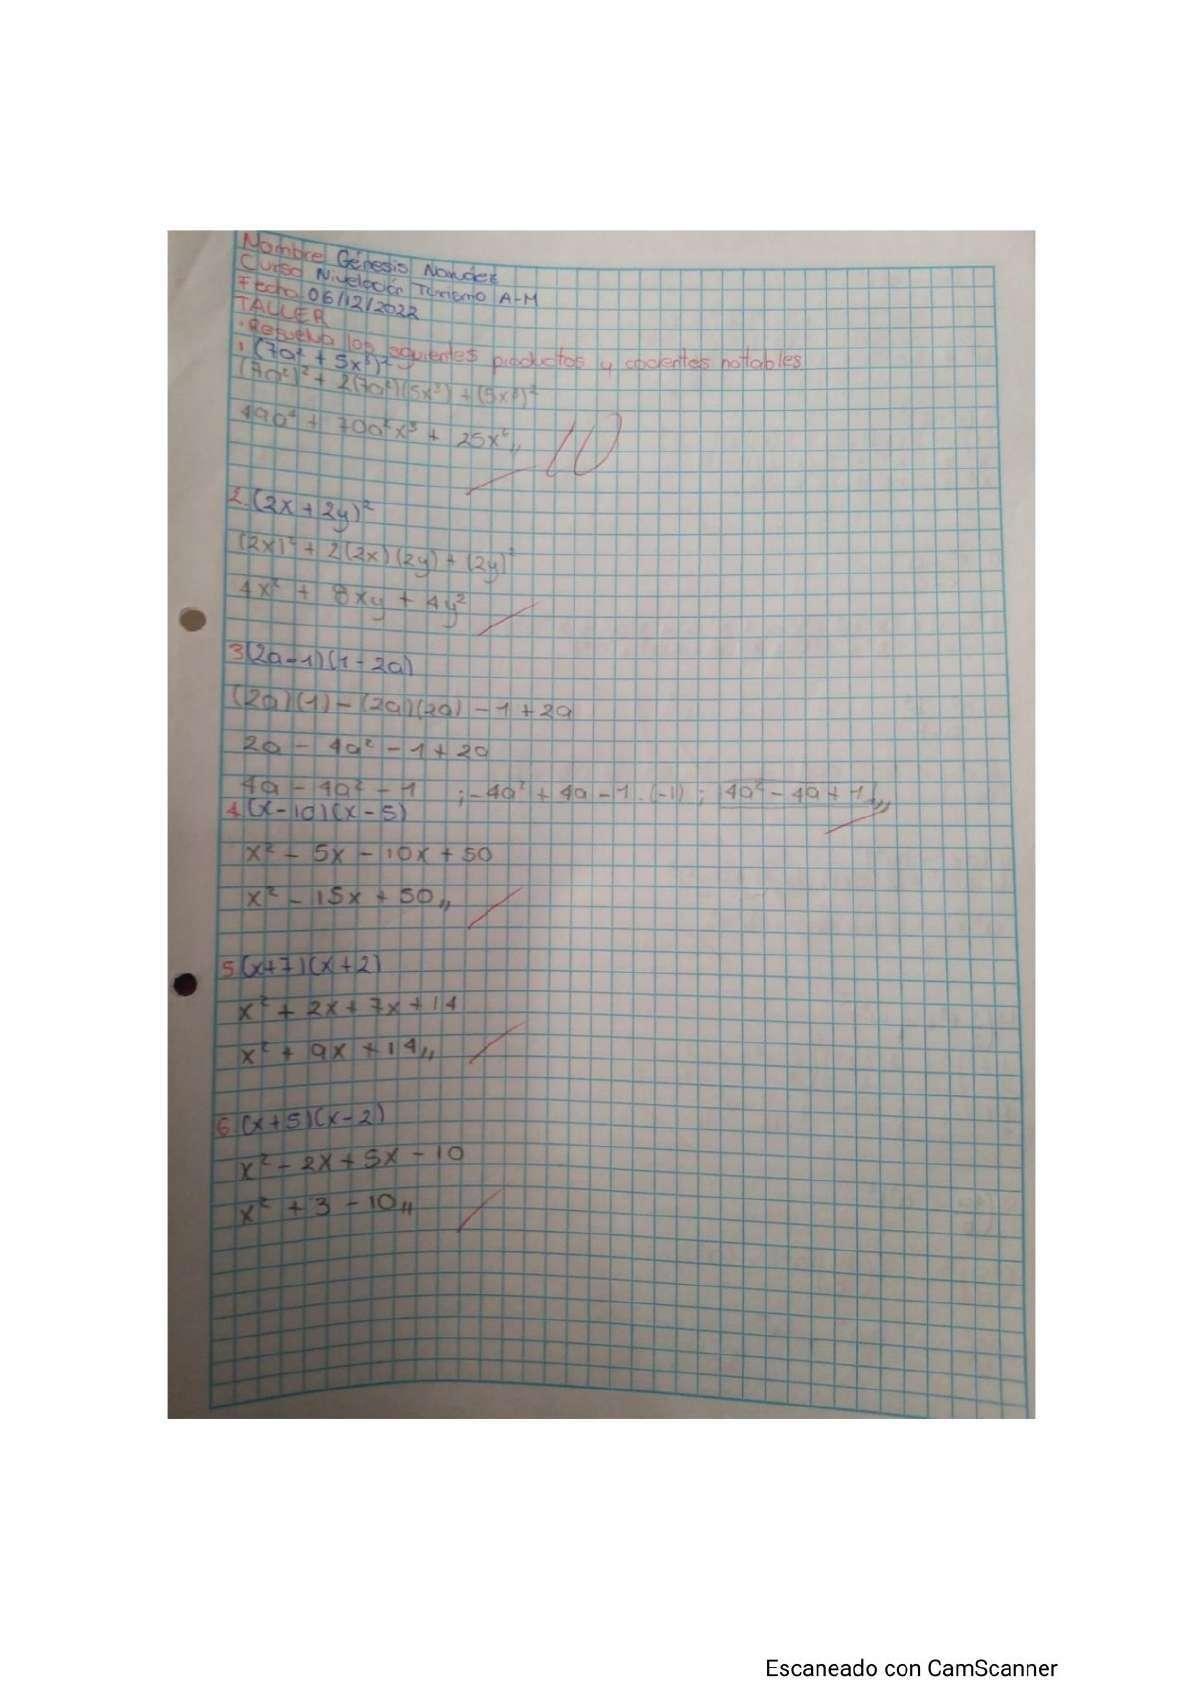 Nombre Génesis Narváez
Curso Nivelación Turismo A-M
Fecha 06/12/2022
TALLER
• Resuelva los siguientes productos y cocientes notables
1 (7a² + 5x³)²
(7a²)² + 2(7a²)(5x³) + (5x³)²
49a⁴ + 70a²x³ + 25x⁶,,
10
2. (2x + 2y)²
(2x)² + 2(2x)(2y) + (2y)²
4x² + 8xy + 4y²
3 (2a-1)(1-2a)
(2a)(1) - (2a)(2a) - 1 + 2a
2a - 4a² - 1 + 2a
4a - 4a² - 1 ; -4a² + 4a - 1 . (-1) ; 4a² - 4a + 1,,
4 (x-10)(x-5)
x² - 5x - 10x + 50
x² - 15x + 50,,
5 (x+7)(x+2)
x² + 2x + 7x + 14
x² + 9x + 14,,
6 (x+5)(x-2)
x² - 2x + 5x - 10
x² + 3 - 10,,
Escaneado con CamScanner